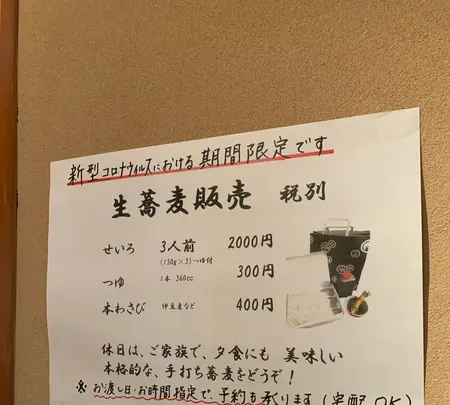 新型コロナウィルスにおける期間限定です
生蕎麦販売 税別
せいろ 3人前 2000円
(150g×3)つゆ付
つゆ 1本 360cc 300円
本わさび 伊豆産など 400円
休日は、ご家族で、夕食にも 美味しい
本格的な、手打ち蕎麦をどうぞ!
※お渡し日・お時間指定で、予約も承ります(宅配OK)